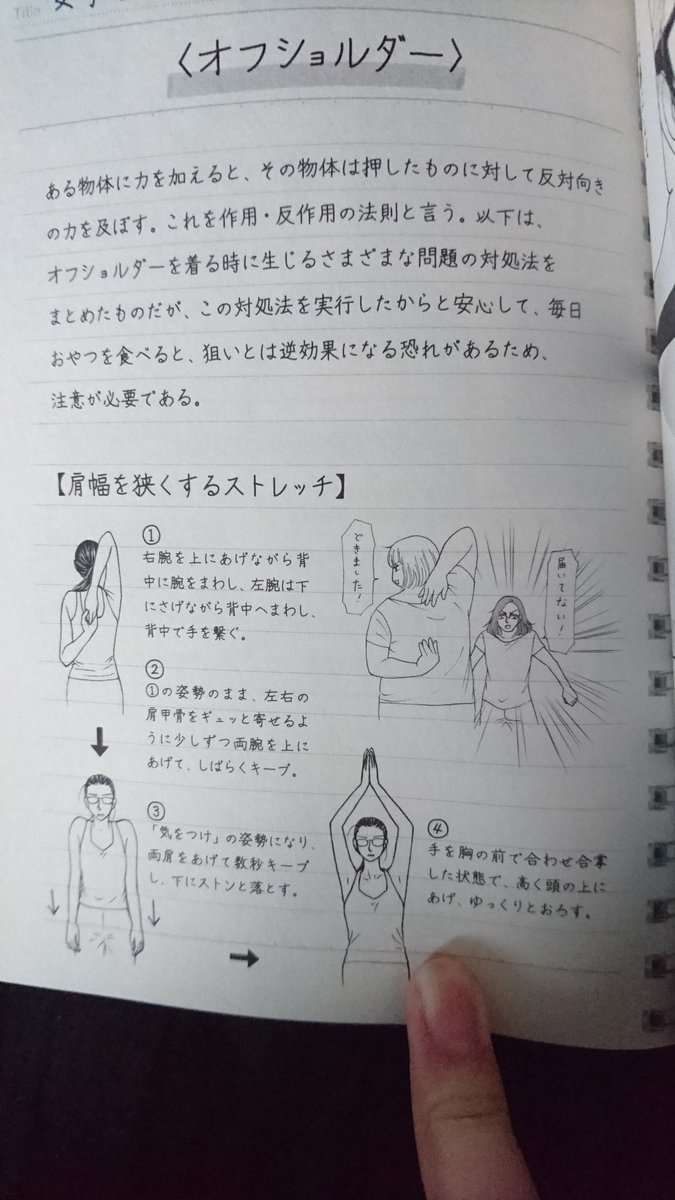 Title
〈オフショルダー〉
ある物体に力を加えると、その物体は押したものに対して反対向き
の力を及ぼす。これを作用・反作用の法則と言う。以下は、
オフショルダーを着る時に生じるさまざまな問題の対処法を
まとめたものだが、この対処法を実行したからと安心して、毎日
おやつを食べると、狙いとは逆効果になる恐れがあるため、
注意が必要である。
【肩幅を狭くするストレッチ】
①
右腕を上にあげながら背
中に腕をまわし、左腕は下
にさげながら背中へまわし、
背中で手を繋ぐ。
できました!
届いてない!
②
①の姿勢のまま、左右の
肩甲骨をギュッと寄せるよ
うに少しずつ両腕を上に
あげて、しばらくキープ。
③
「気をつけ」の姿勢になり、
両肩をあげて数秒キープ
し、下にストンと落とす。
④
手を胸の前で合わせ合掌
した状態で、高く頭の上に
あげ、ゆっくりとおろす。